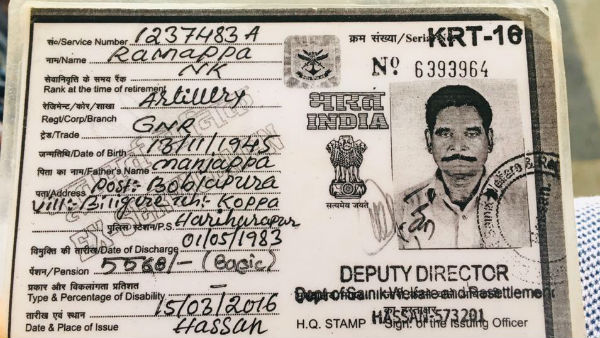 सं०/Service Number 1237483 A
नाम/Name Ramappa
NK
सेवानिवृति के समय रैंक
Rank at the time of retirement
Artillery
रेजिमेन्ट/कोर/शाखा
Regt/Corp/Branch
GNR
ट्रेड/Trade
जन्मतिथि/Date of Birth 13/11/1945
पिता का नाम/Father's Name manjappa
पता/Address Post:- Bobrapura
Vill:- Biligire Koppa
पुलिस स्टेशन/P.S. Hariharapur
विमुक्ति की तारीख/Date of Discharge 01/05/1983
पेंशन/Pension 5568/- (Basic)
प्रकार और विकलांगता प्रतिशत
Type & Percentage of Disability –
तारीख एवं स्थान 15/03/2016
Date & Place of Issue Hassan
क्रम संख्या/Serial No. KRT-16
Nº 6393964
भारत
INDIA
सत्यमेव जयते
DEPUTY DIRECTOR
Dept of Sainik Welfare and Resettlement
HASSAN-573201
H.Q. STAMP Sign. of the Issuing Officer